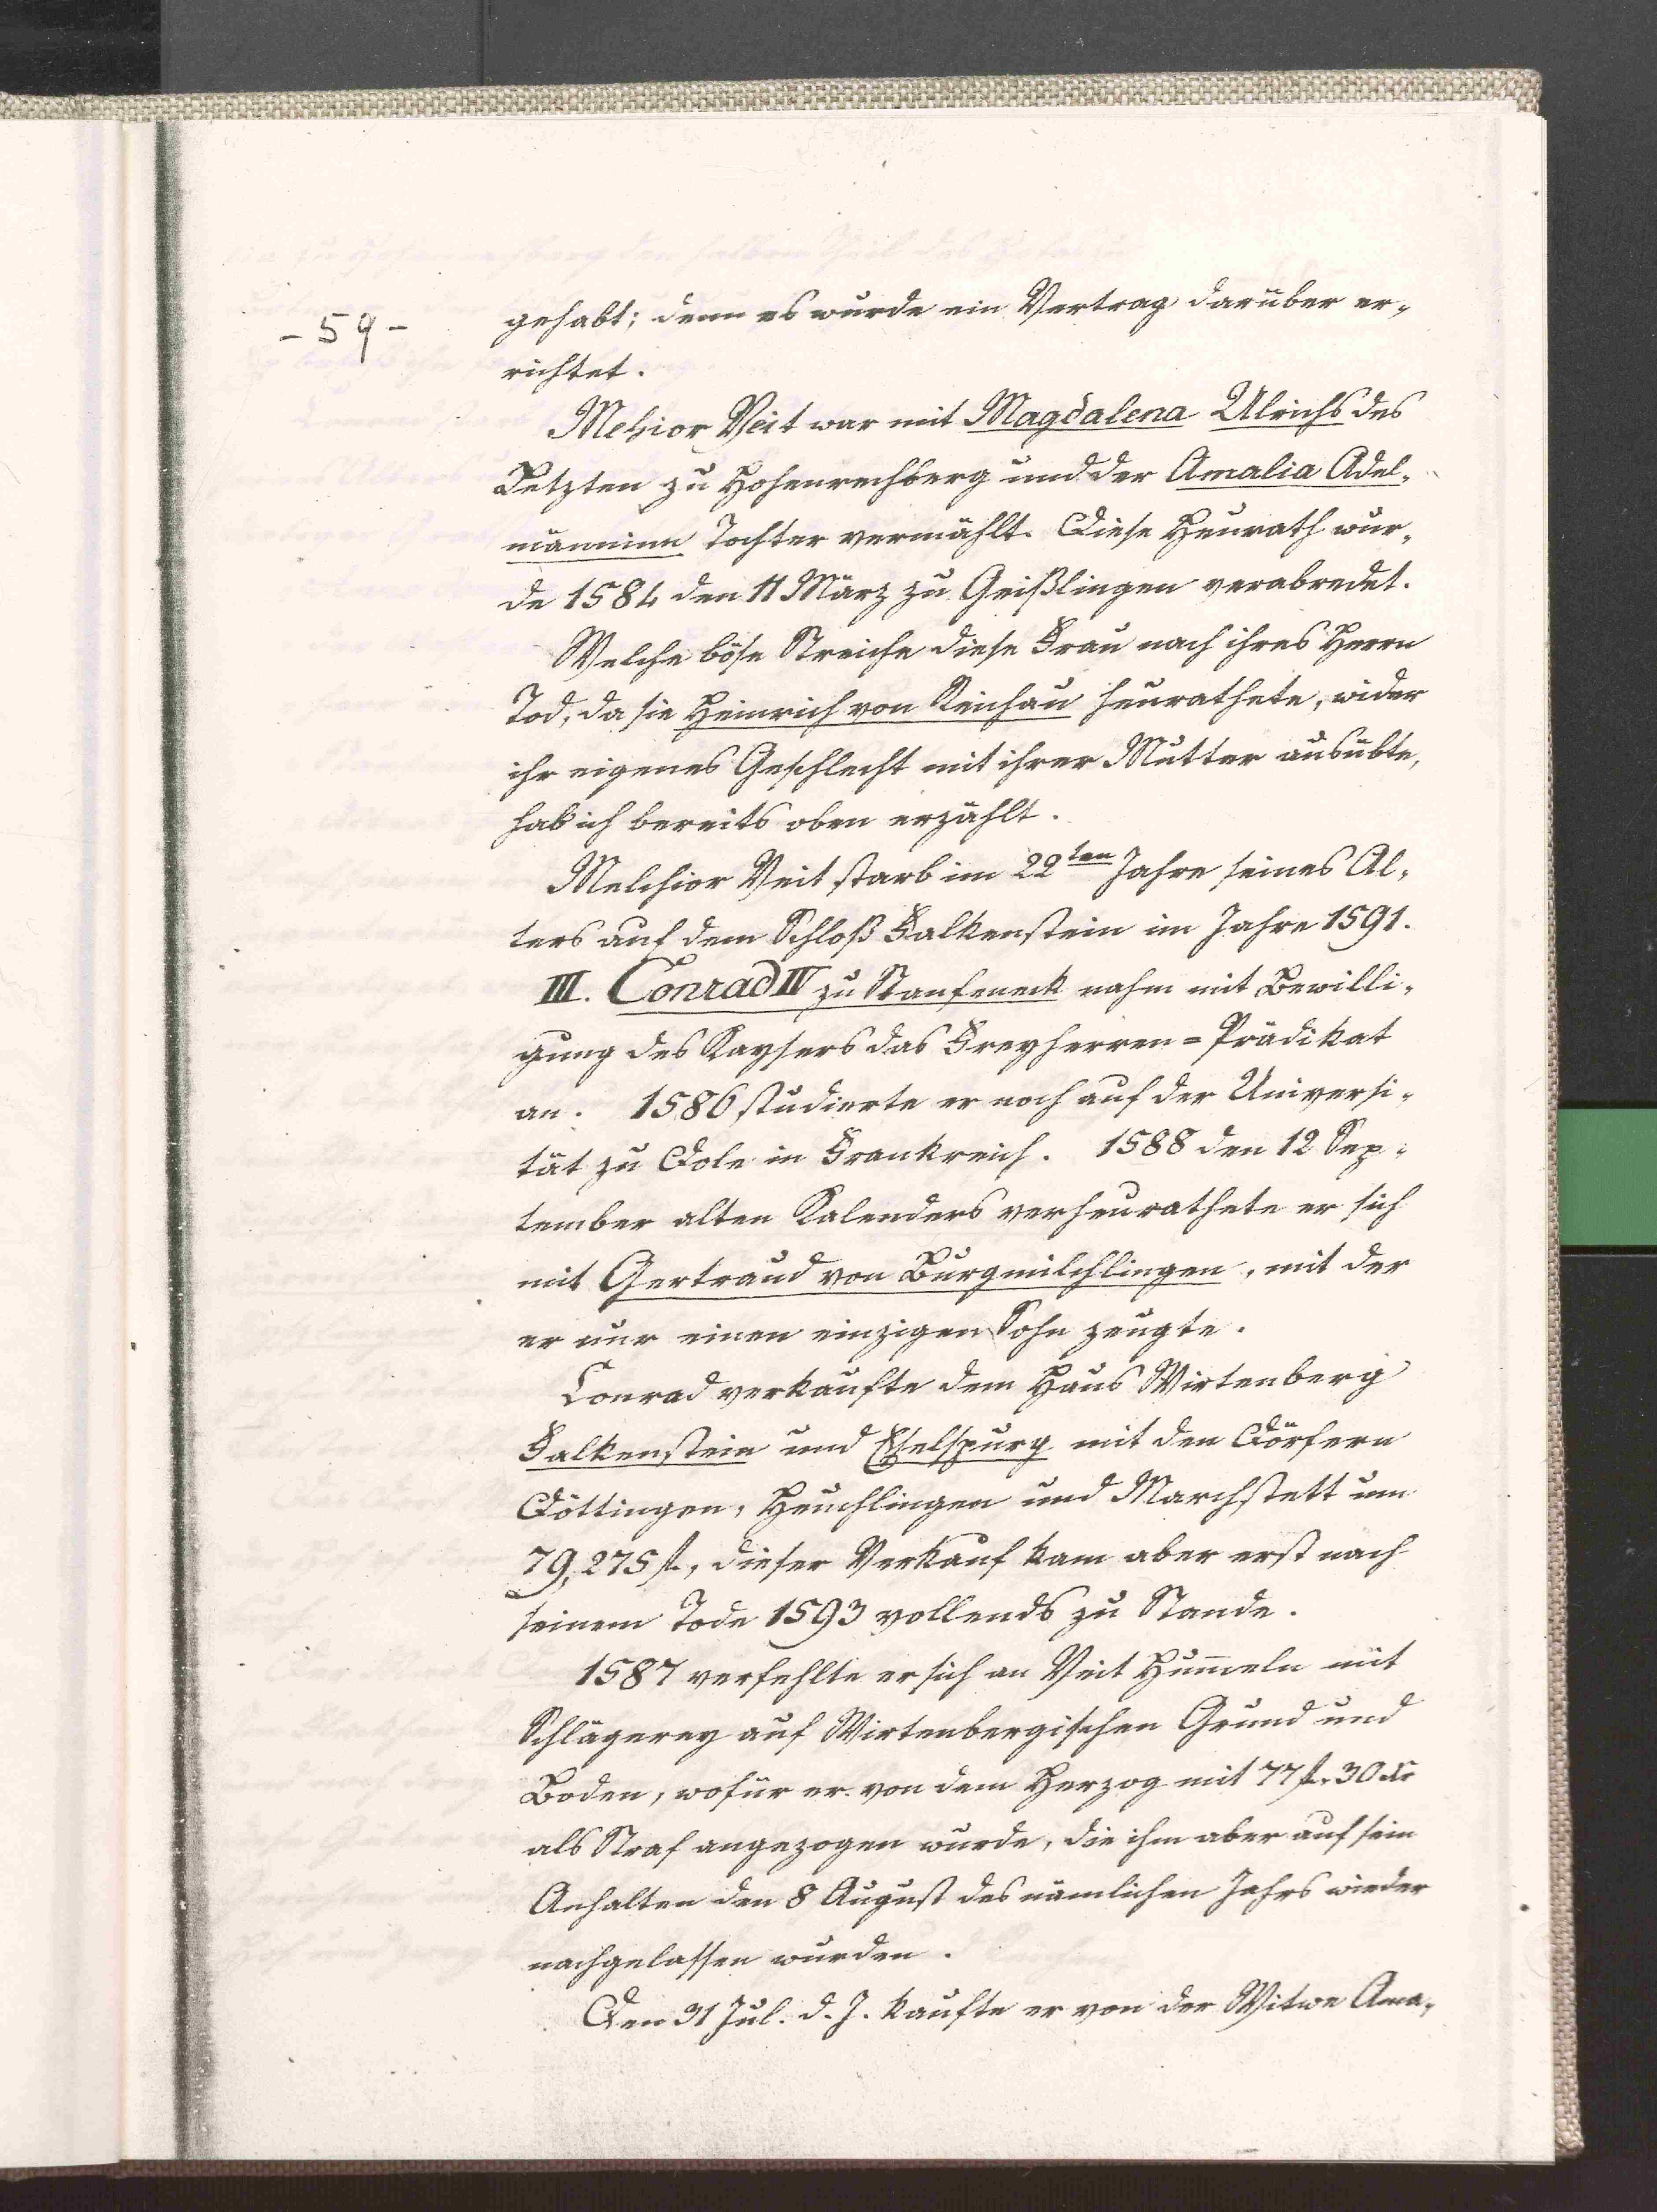 - 59 -
gehabt; denn es wurde ein Vertrag darüber er-
richtet.
Mehior Veit war mit Magdalena Ulrichs des
Letzten zu Hohenrechberg und der Amalia Adel-
männinn Tochter vermählt. Diese Heurath wur-
de 1584 den 11 März zu Geißlingen verabredet.
Welche böse Streiche diese Frau nach ihres Herrn
Tod, da sie Heinrich von Reichau heurathete, wider
ihr eigenes Geschlecht mit ihrer Mutter ausübte,
hab ich bereits oben erzählt.
Melchior Veit starb im 22ten Jahre seines Al-
ters auf dem Schloß Falkenstein im Jahre 1591.
III. Conrad IV zu Staufeneck nahm mit Bewilli-
gung des Kaysers das Freyherren-Prädikat
an. 1586 studierte er noch auf der Universi-
tät zu Dole in Frankreich. 1588 den 12 Sep-
tember alten Kalenders verheurathete er sich
mit Gertraud von Burgmilchlingen, mit der
er nur einen einzigen Sohn zeugte.
Conrad verkaufte dem Haus Wirtenberg
Falkenstein und Eselspurg mit den Dörfern
Döttingen, Heuchlingen und Marchstett um
79,275 fl., dieser Verkauf kam aber erst nach
seinem Tode 1593 vollends zu Stande.
1587 verfehlte er sich an Veit Hum̄eln mit
Schlägerey auf Wirtenbergischen Grund und
Boden, wofür er von dem Herzog mit 77 fl. 30 Kr
als Straf angezogen wurde, die ihm aber auf sein
Anhalten den 8 August des nämlichen Jahrs wieder
nachgelassen wurden.
Den 31 Jul. d. J. kaufte er von der Witwe Ama-